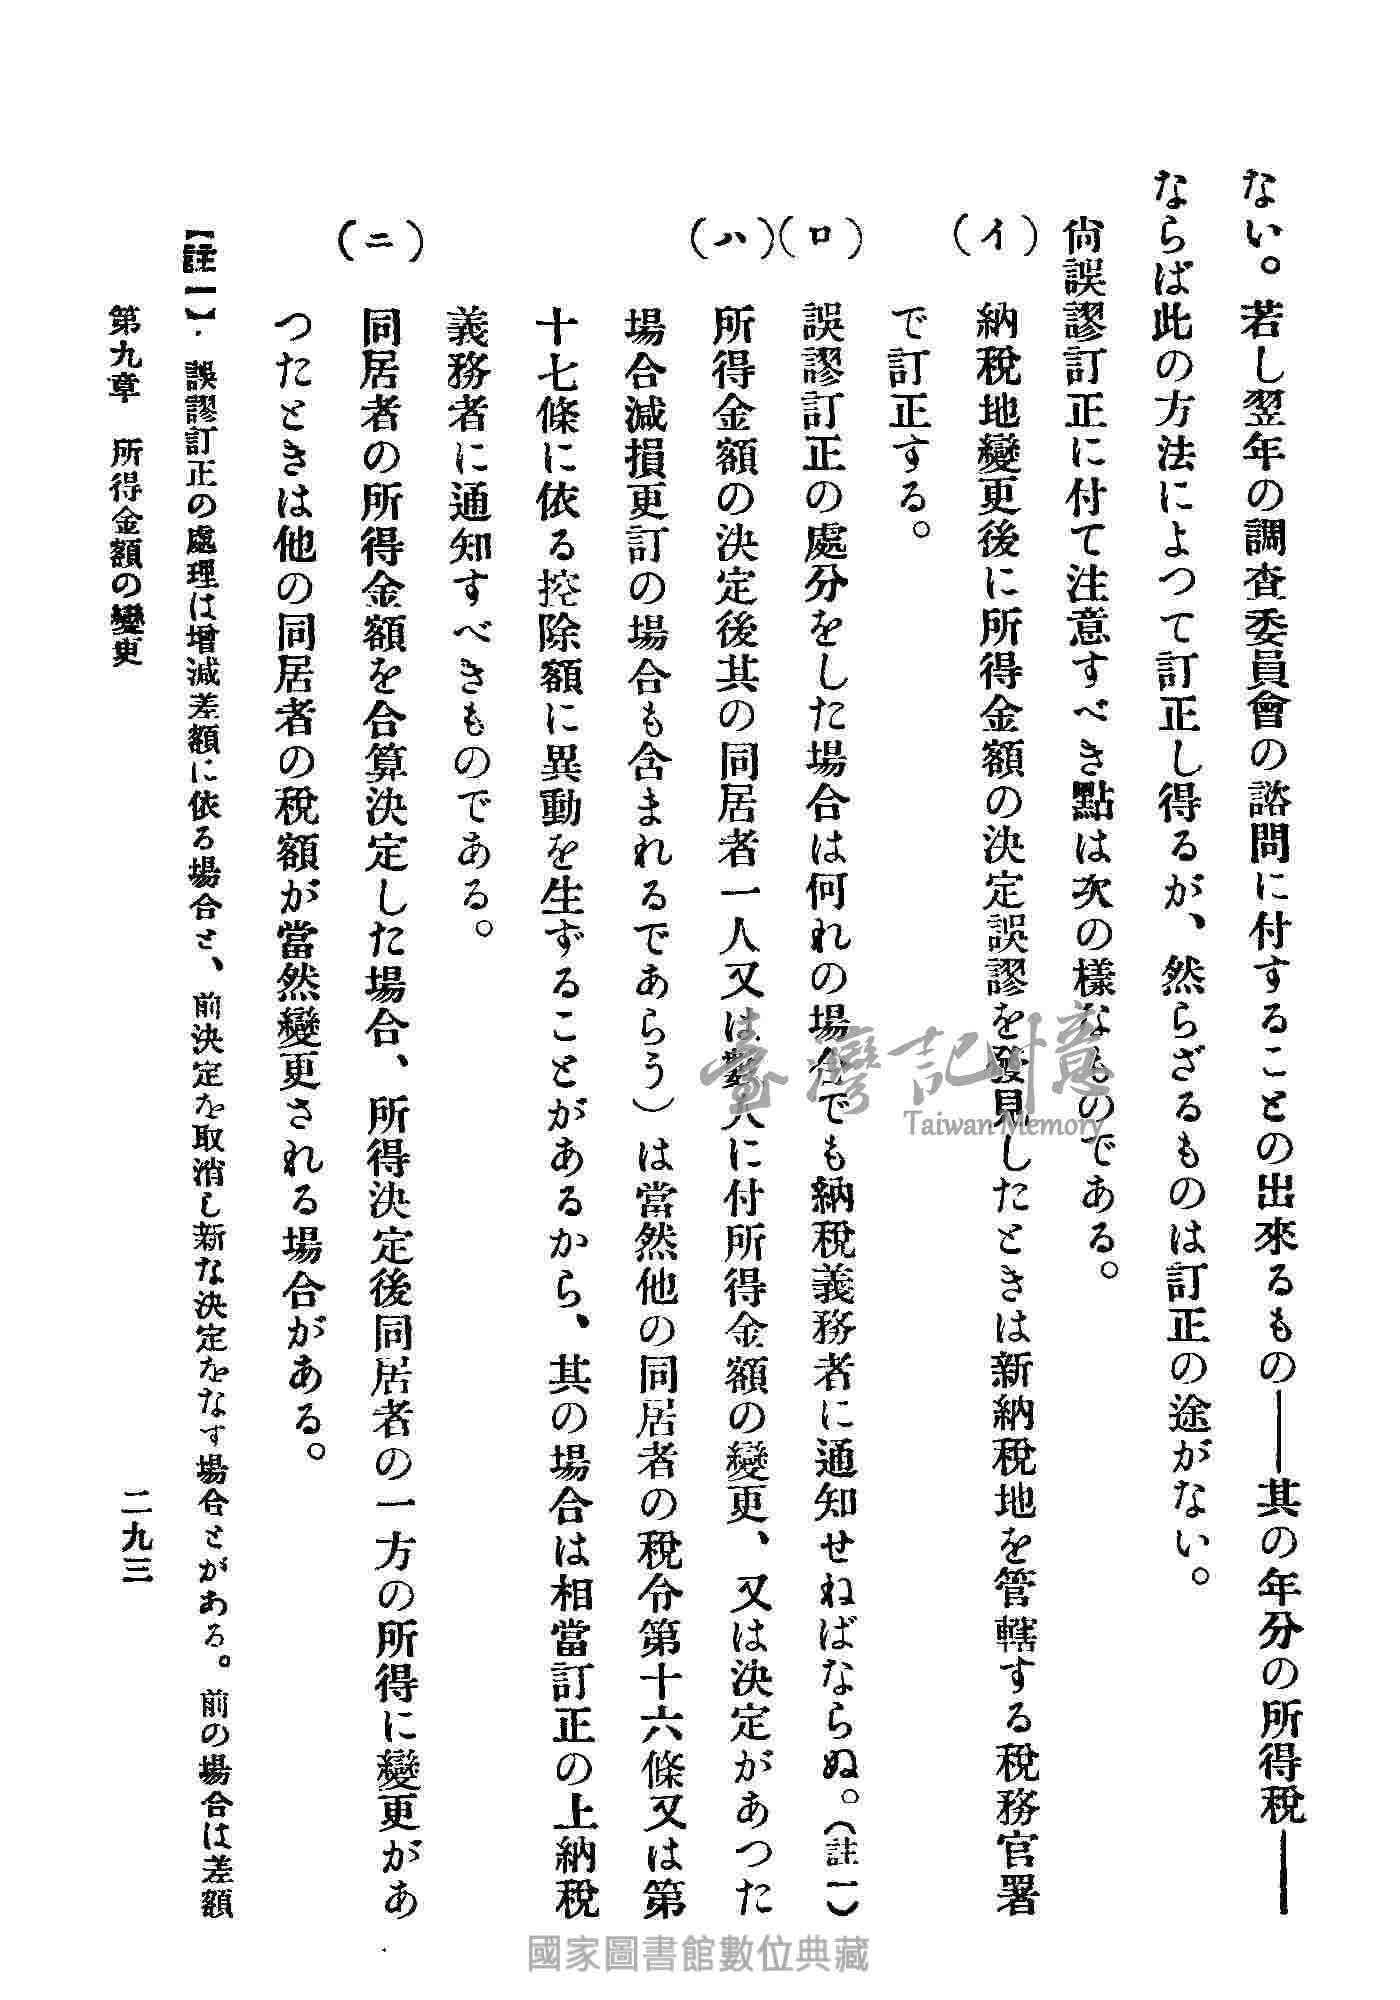 ない。若し翌年の調査委員會の諮問に付することの出來るもの――其の年分の所得税――
ならば此の方法によつて訂正し得るが、然らざるものは訂正の途がない。
尙誤謬訂正に付て注意すべき點は次の樣なものである。
(イ) 納税地變更後に所得金額の決定誤謬を發見したときは新納税地を管轄する税務官署
で訂正する。
(ロ) 誤謬訂正の處分をした場合は何れの場合でも納税義務者に通知せねばならぬ。(註一)
(ハ) 所得金額の決定後其の同居者一人又は數人に付所得金額の變更、又は決定があつた
場合減損更訂の場合も含まれるであらう)は當然他の同居者の税令第十六條又は第
十七條に依る控除額に異動を生ずることがあるから、其の場合は相當訂正の上納税
義務者に通知すべきものである。
(ニ) 同居者の所得金額を合算決定した場合、所得決定後同居者の一方の所得に變更があ
つたときは他の同居者の税額が當然變更される場合がある。
【註一】. 誤謬訂正の處理は增減差額に依る場合と、前決定を取消し新な決定をなす場合とがある。前の場合は差額
第九章 所得金額の變更 二九三
臺灣記憶
Taiwan Memory
國家圖書館數位典藏